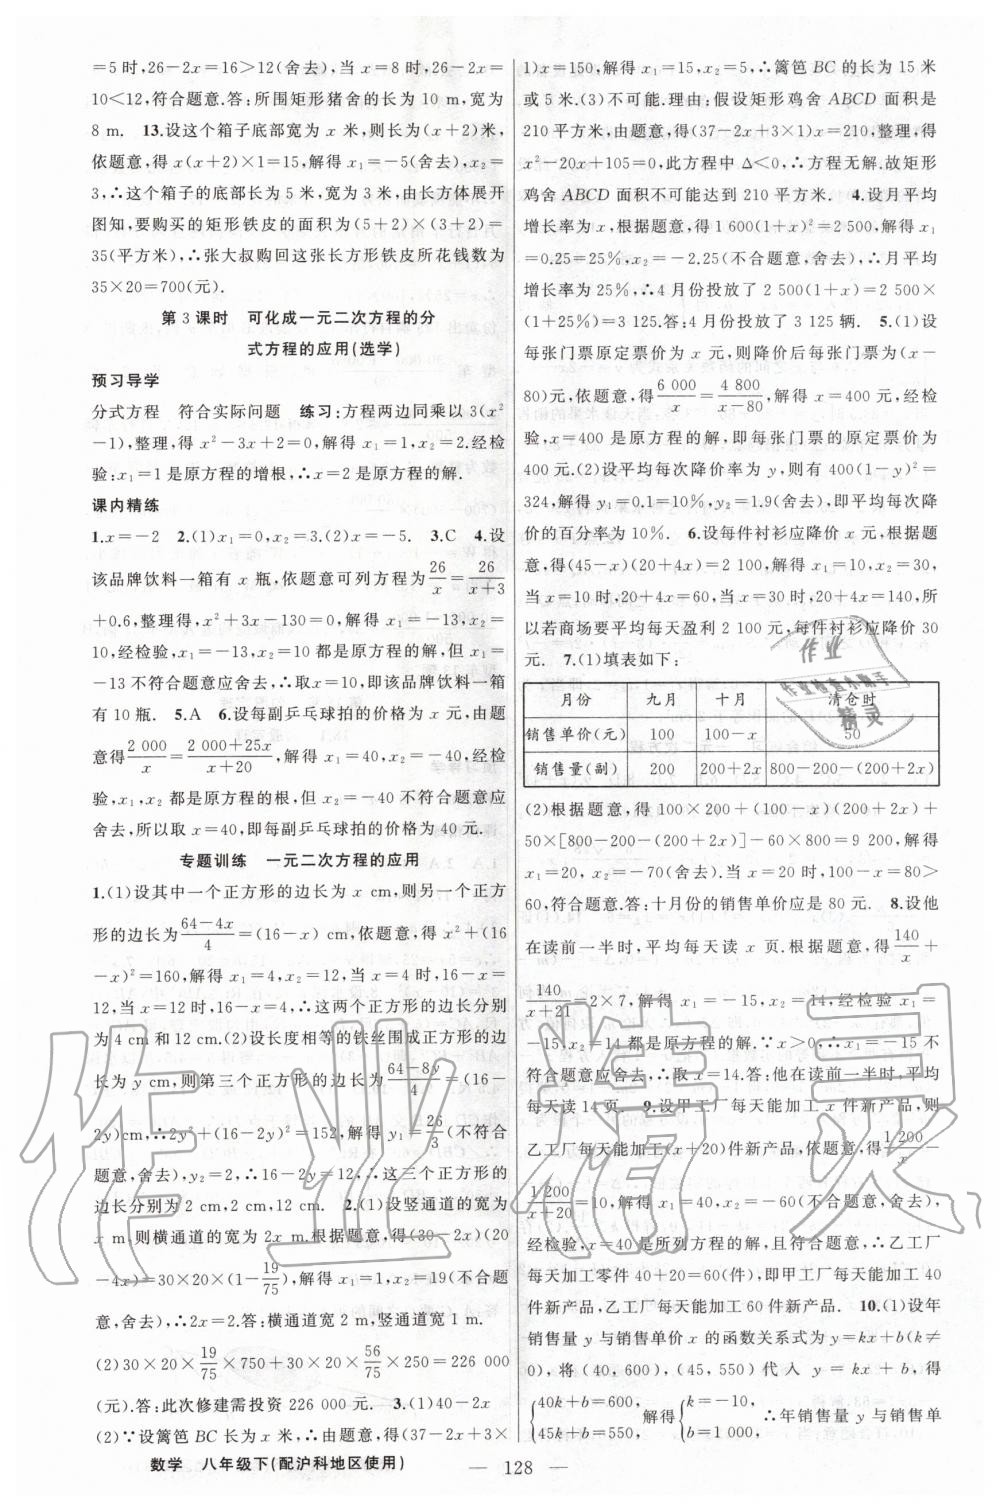 =5时,26-2x=16>12(舍去),当x=8时,26-2x=
10<12,符合题意.答:所围矩形猪舍的长为10 m,宽为
8 m. 13.设这个箱子底部宽为x米,则长为(x+2)米,
依题意,得x(x+2)×1=15,解得x₁=-5(舍去),x₂=
3,∴这个箱子的底部长为5米,宽为3米,由长方体展开
图知,要购买的矩形铁皮的面积为(5+2)×(3+2)=
35(平方米),∴张大叔购回这张长方形铁皮所花钱数为
35×20=700(元).
第3课时 可化成一元二次方程的分
式方程的应用(选学)
预习导学
分式方程 符合实际问题 练习:方程两边同乘以3(x²
-1),整理,得x²-3x+2=0,解得x₁=1,x₂=2.经检
验:x₁=1是原方程的增根,∴x=2是原方程的解.
课内精练
1.x=-2 2.(1)x₁=0,x₂=3.(2)x=-5. 3.C 4.设
该品牌饮料一箱有x瓶,依题意可列方程为26/x=26/(x+3)
+0.6,整理得,x²+3x-130=0,解得x₁=-13,x₂=
10,经检验,x₁=-13,x₂=10都是原方程的解,但x₁=
-13不符合题意应舍去,∴取x=10,即该品牌饮料一箱
有10瓶. 5.A 6.设每副乒乓球拍的价格为x元,由题
意得2 000/x=(2 000+25x)/(x+20),解得x₁=40,x₂=-40,经检
验,x₁,x₂都是原方程的根,但x=-40不符合题意应
舍去,所以取x=40,即每副乒乓球拍的价格为40元.
专题训练 一元二次方程的应用
1.(1)设其中一个正方形的边长为x cm,则另一个正方
形的边长为(64-4x)/4=(16-x) cm,依题意,得x²+(16
-x)²=160,解得x₁=4,x₂=12,当x=4时,16-x=
12,当x=12时,16-x=4,∴这两个正方形的边长分别
为4 cm和12 cm.(2)设长度相等的铁丝围成正方形的边
长为y cm,则第三个正方形的边长为(64-8y)/4=(16-
2y)cm,∴2y²+(16-2y)²=152,解得y₁=26/3(不符合
题意,舍去),y₂=2,∴16-2y=12,∴这三个正方形的
边长分别为2 cm,2 cm,12 cm. 2.(1)设竖通道的宽为
x m,则横通道的宽为2x m.根据题意,得(30-2x)(20
-4x)=30×20×(1-19/75),解得x₁=1,x₂=19(不合题
意,舍去),∴2x=2.答:横通道宽2 m,竖通道宽1 m.
(2)30×20×19/75×750+30×20×56/75×250=226 000
(元).答:此次修建需投资226 000元. 3.(1)40-2x
(2)∵设篱笆BC长为x米,∴由题意,得(37-2x+3×
数学 八年级下(配沪科地区使用)
1)x=150,解得x₁=15,x₂=5,∴篱笆BC的长为15米
或5米.(3)不可能.理由:假设矩形鸡舍ABCD面积是
210平方米,由题意,得(37-2x+3×1)x=210,整理,得
x²-20x+105=0,此方程中Δ<0,∴方程无解.故矩形
鸡舍ABCD面积不可能达到210平方米. 4.设月平均
增长率为x,根据题意,得1 600(1+x)²=2 500,解得x₁
=0.25=25%,x₂=-2.25(不合题意,舍去),∴月平均
增长率为25%,∴4月份投放了2 500(1+x)=2 500×
(1+25%)=3 125.答:4月份投放了3 125辆. 5.(1)设
每张门票原定票价为x元,则降价后每张门票为(x-
80)元,依题意,得6 000/x=4 800/(x-80),解得x=400元,经检
验,x=400是原方程的解,即每张门票的原定票价为
400元.(2)设平均每次降价率为y,则有400(1-y)²=
324,解得y₁=0.1=10%,y₂=1.9(舍去),即平均每次降
价的百分率为10%. 6.设每件衬衫应降价x元,根据题
意,得(45-x)(20+4x)=2 100,解得x₁=10,x₂=30,
当x=10时,20+4x=60,当x=30时,20+4x=140,所
以若商场要平均每天盈利2 100元,每件衬衫应降价30
元. 7.(1)填表如下:
月份 九月 十月 清仓时
销售单价(元) 100 100-x 50
销售量(副) 200 200+2x 800-200-(200+2x)
(2)根据题意,得100×200+(100-x)(200+2x)+
50×[800-200-(200+2x)]-60×800=9 200,解得
x₁=20,x₂=-70(舍去).当x=20时,100-x=80>
60,符合题意.答:十月份的销售单价应是80元. 8.设他
在读前一半时,平均每天读x页.不合题意,得140/x+
140/(x+21)=2×7,解得x₁=-15,x₂=14,经检验x₁=
-15,x₂=14都是原方程的解.∵x>0,∴x₁=-15不
符合题意应舍去,∴取x=14.答:他在读前一半时,平均
每天读14页. 9.设甲工厂每天能加工x件新产品,则
乙工厂每天能加工(x+20)件新产品,依题意,得1 200/x-
1 200/(x+20)=10,解得x₁=40,x₂=-60(不合题意,舍去),
经检验,x=40是所列方程的解,且符合题意,∴乙工厂
每天加工零件40+20=60(件),即甲工厂每天能加工40
件新产品,乙工厂每天能加工60件新产品. 10.(1)设年
销售量y与销售单价x的函数关系式为y=kx+b(k≠
0),将(40,600),(45,550)代入y=kx+b,得
{40k+b=600, 45k+b=550, 解得{k=-10, b=1 000, ∴年销售量y与销售单
— 128 —
作业
作业检查小助手
精灵
作业精灵